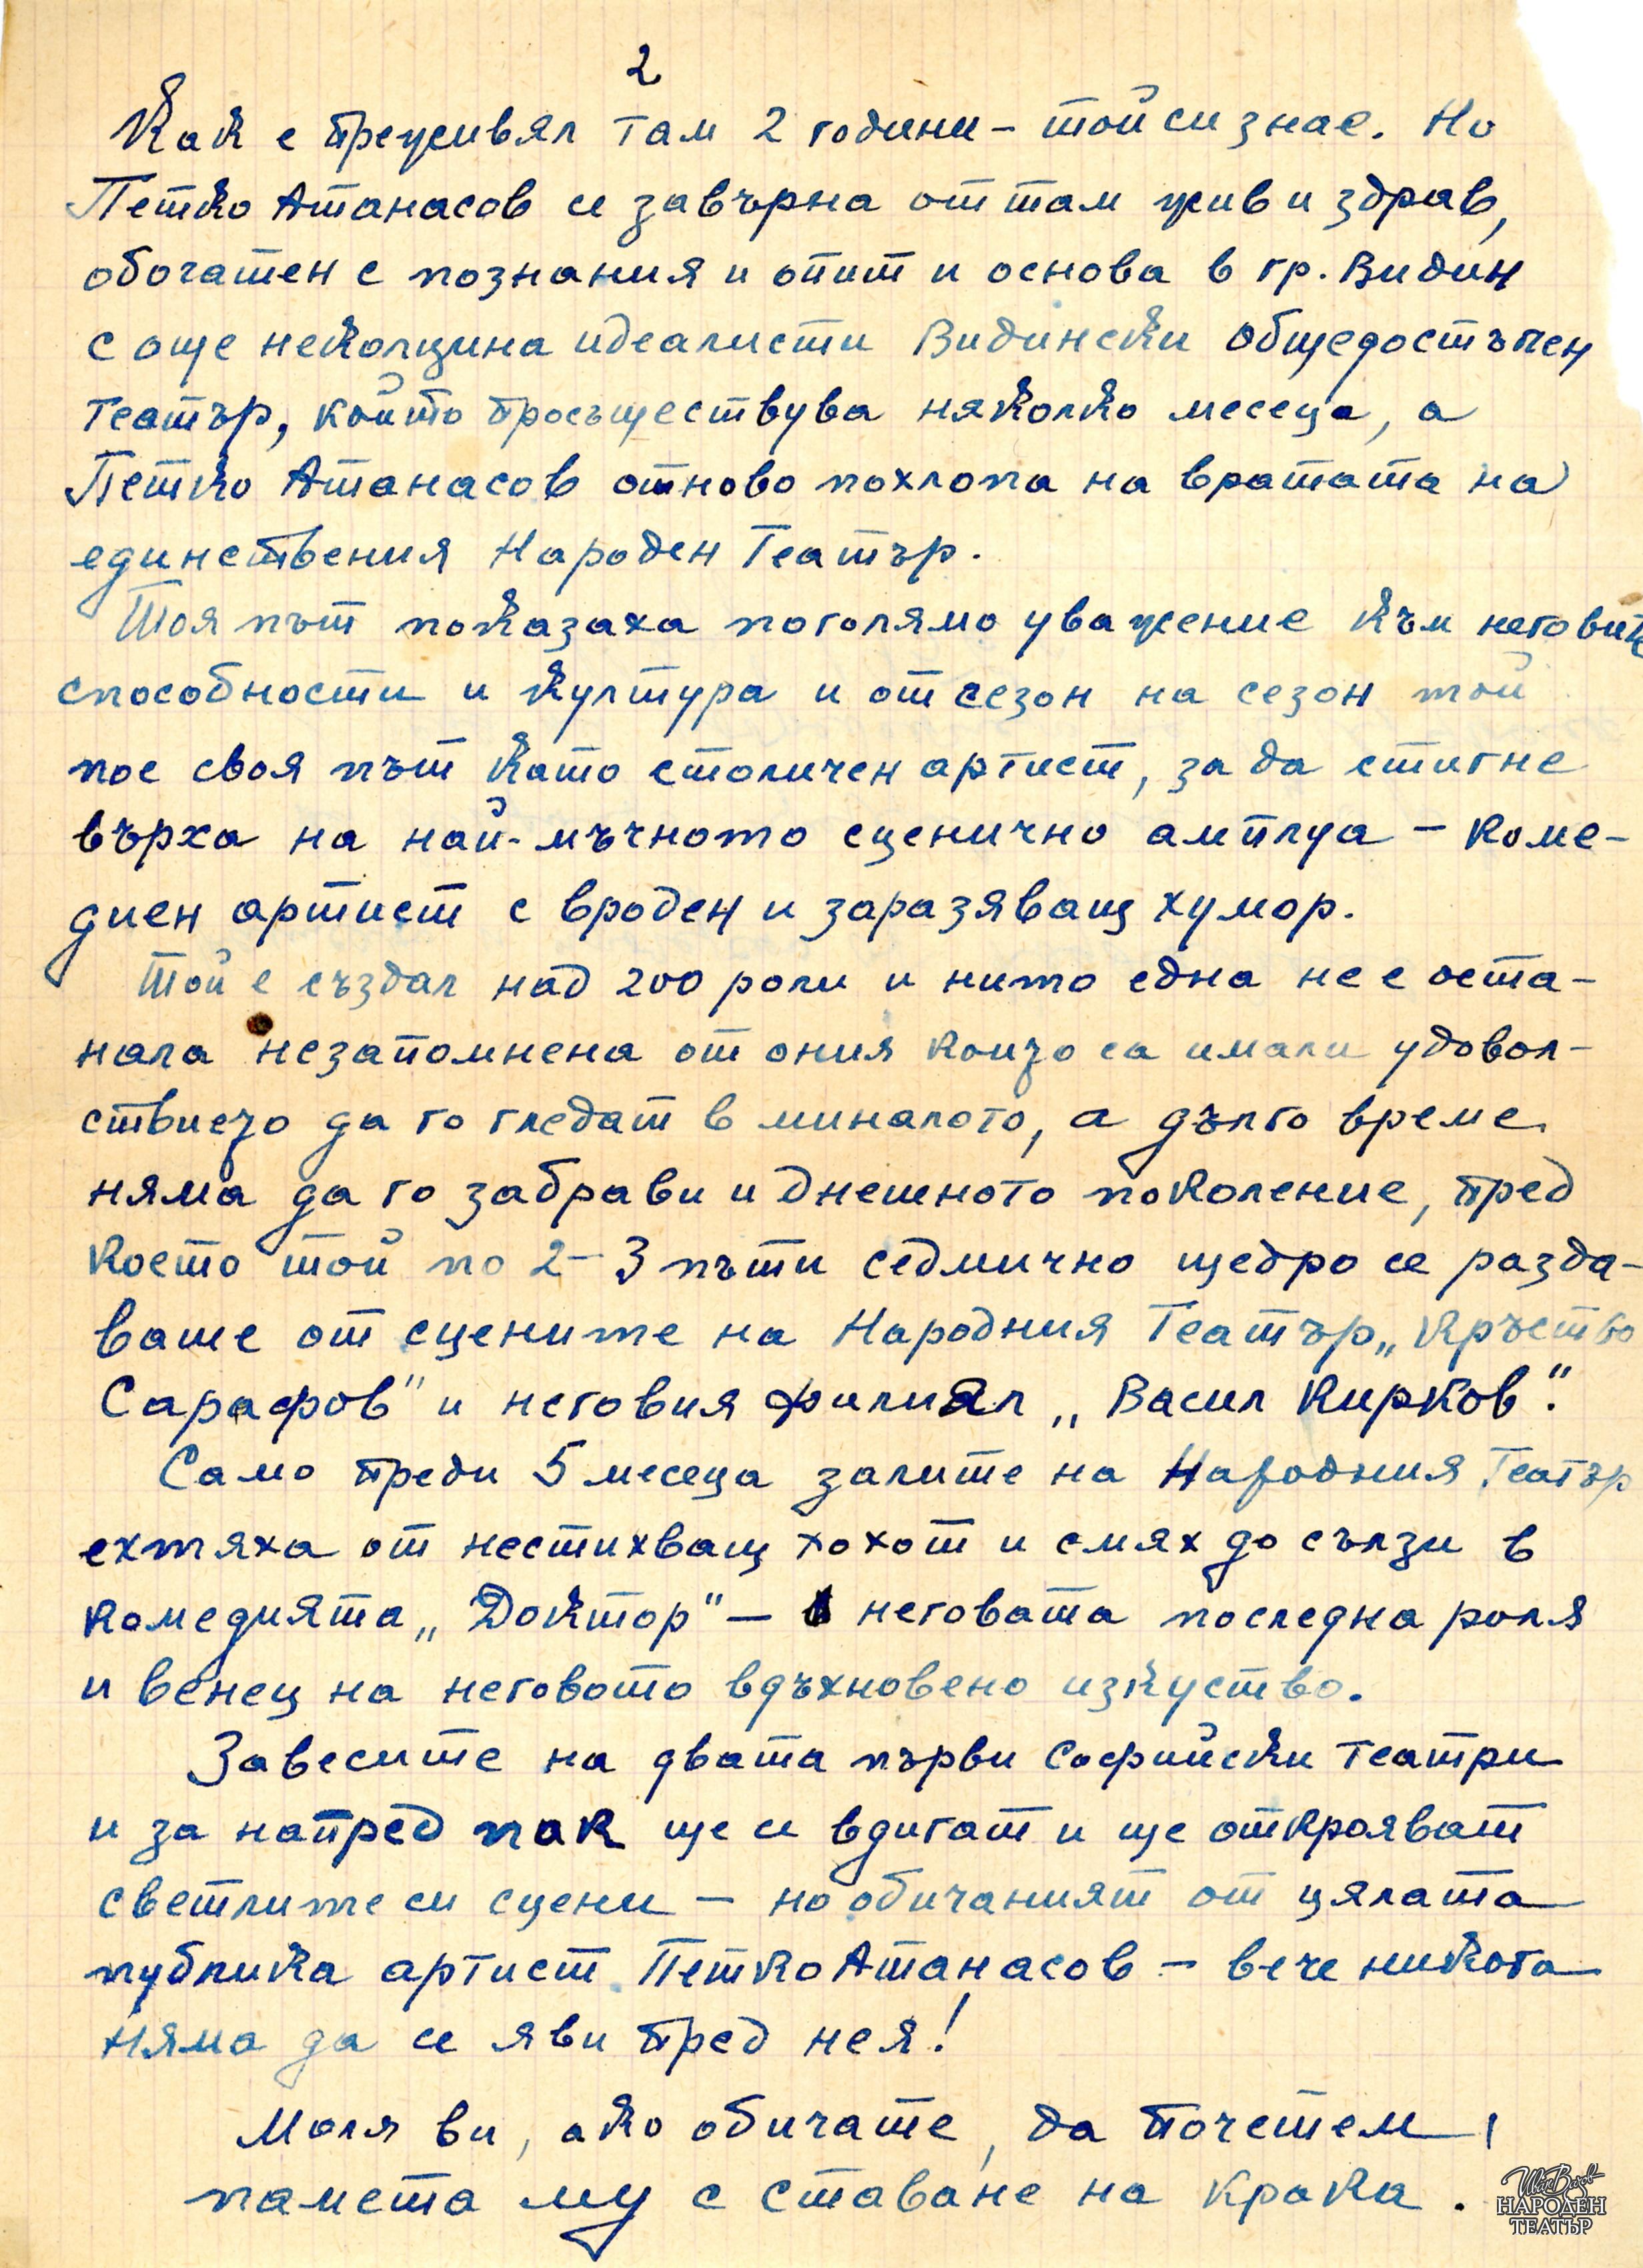 2
Как е преживял там 2 години – той си знае. Но
Петко Атанасов се завърна от там жив и здрав,
обогатен с познания и опит и основа в гр. Видин
с още неколцина идеалисти Видински Общедостъпен
Театър, който просъществува няколко месеца, а
Петко Атанасов отново похлопа на вратата на
единствения Народен Театър.
Тоя път показаха поголямо уважение към неговите
способности и култура и от сезон на сезон той
пое своя път като столичен артист, за да стигне
върха на най-мъчното сценично амплуа – коме-
диен артист с вроден и заразяващ хумор.
Той е създал над 200 роли и нито една не е оста-
нала незапомнена от ония които са имали удовол-
ствието да го гледат в миналото, а дълго време
няма да го забрави и днешното поколение, пред
което той по 2–3 пъти седмично щедро се разда-
ваше от сцените на Народния Театър „Кръстьо
Сарафов" и неговия филиал „Васил Кирков".
Само преди 5 месеца залите на Народния Театър
ехтяха от нестихващ хохот и смях до сълзи в
комедията „Доктор" – неговата последна роля
и венец на неговото вдъхновено изкуство.
Завесите на двата първи Софийски театри
и за напред пак ще се вдигат и ще открояват
светлите си сцени – но обичаният от цялата
публика артист Петко Атанасов – вече никога
няма да се яви пред нея!
Моля ви, ако обичате, да почетем
паметта му с ставане на крака.
Иван Вазов
НАРОДЕН
ТЕАТЪР